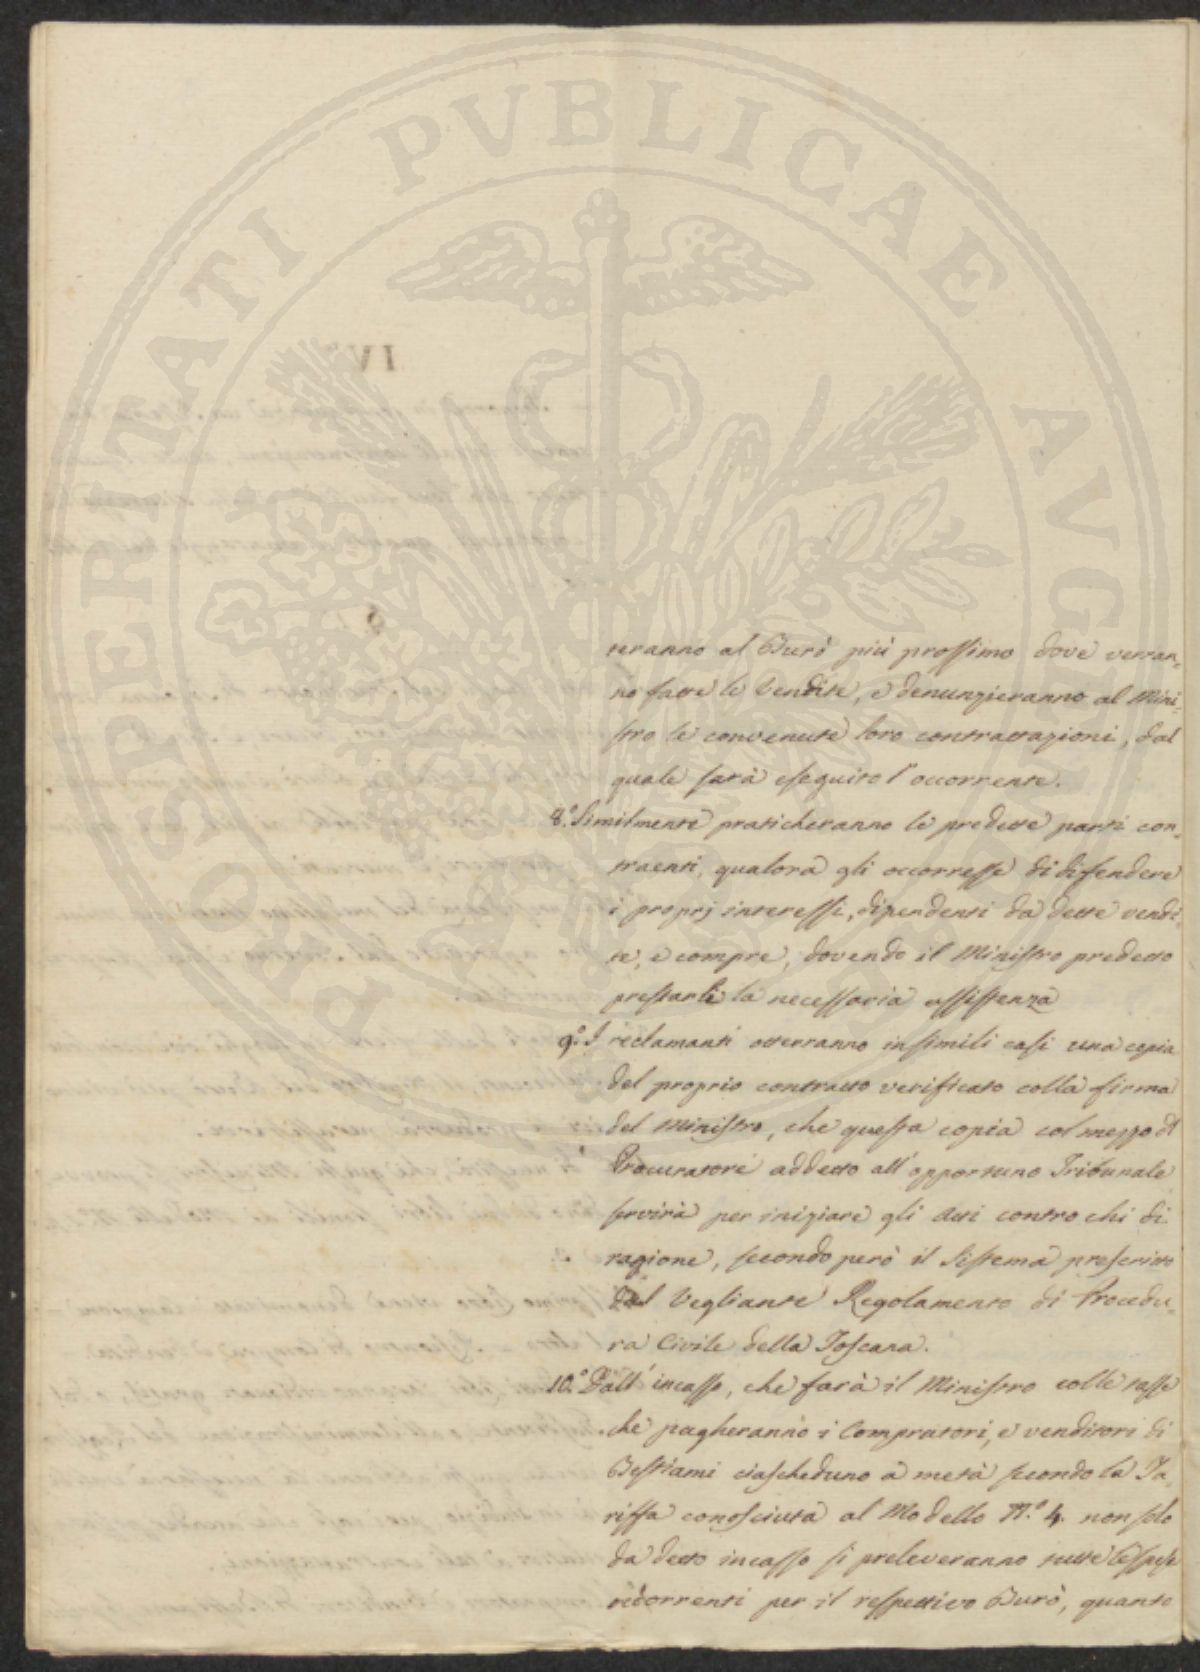 PROSPERITATI PVBLICAE AVGENDAE
teranno al Burò più prossimo dove verran-
no fatte le Vendite, e denunzieranno al Mini-
stro le convenute loro contrattazioni, dal
quale sarà eseguito l'occorrente.
8.° Similmente praticheranno le predette parti con-
traenti, qualora gli occorresse di difendere
i proprj interessi, dipendenti da dette vendi-
te, e compre, dovendo il Ministro predetto
prestarli la necessaria assistenza
9.° I reclamanti otterranno in simili casi una copia
del proprio contratto verificato colla firma
del Ministro, che questa copia col mezzo di
Procuratore addetto all'opportuno Tribunale
servirà per iniziare gli Atti contro chi di
ragione, secondo però il Sistema prescritto
dal Vegliante Regolamento di Procedu-
ra Civile della Toscana.
10.° Dall'incasso, che farà il Ministro colle tasse
che pagheranno i Compratori, e venditori di
Bestiami ciascheduno a metà secondo la Ta-
riffa conosciuta al Modello N.° 4. non solo
da detto incasso si preleveranno tutte le spese
occorrenti per il respettivo Burò, quante